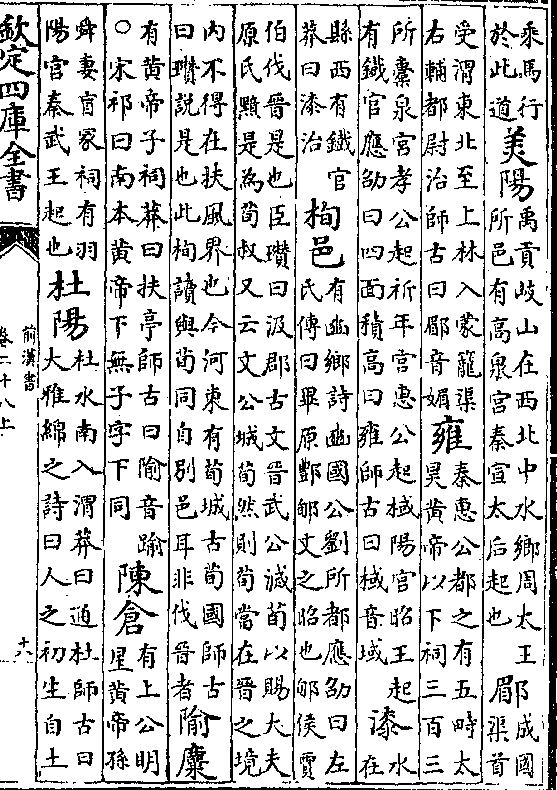 乘馬行
於此道
美陽
禹貢岐山在西北中水鄉周太王
所邑有高泉宮秦宣太后起也
郿
成國
渠首
受渭東北至上林入蒙籠渠
右輔都尉治師古曰郿音媚
雍
秦惠公都之有五畤太
昊黄帝以下祠三百三
所橐泉宮孝公起祈年宮惠公起棫陽宮昭王起
有鐵官應劭曰四面積高曰雍師古曰棫音域
漆
水
在
縣西有鐵官
莽曰漆治
栒邑
有豳鄉詩豳國公劉所都應劭曰左
氏傳曰畢原酆郇文之昭也郇侯賈
伯伐晉是也臣瓚曰汲郡古文晉武公滅荀以賜大夫
原氏黯是為荀叔又云文公城荀然則荀當在晉之境
内不得在扶風界也今河東有荀城古荀國師古
曰瓚說是也此栒讀與荀同自別邑耳非伐晉者
隃麋
有黄帝子祠莽曰扶亭師古曰隃音踰
○宋祁曰南本黄帝下無子字下同
陳倉
有上公明
星黄帝孫
舜妻盲冢祠有羽
陽宮秦武王起也
杜陽
杜水南入渭莽曰通杜師古曰
大雅緜之詩曰人之初生自土
欽定四庫全書
前漢書
卷二十八上
十六